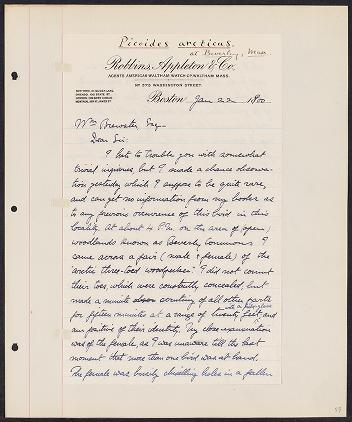 Picoides arcticus.
at Beverly, Mass.
Robbins, Appleton & Co.
AGENTS AMERICAN WALTHAM WATCH CO. WALTHAM MASS.
No 373 WASHINGTON STREET.
Boston Jan 22 1800.
Wm Brewster Esq.
Dear Sir:
I hate to trouble you with somewhat
trivial inquiries, but I made a chance observa-
tion yesterday which I suppose to be quite rare,
and can get no information from my books as
to any previous occurrence of this bird in this
locality. At about 4 P.M. on the area of (open)
woodlands known as Beverly Commons I
came across a pair (male & female) of the
arctic three-toed woodpecker. I did not count
their toes, which were constantly concealed, but
made a minute scrutiny of all other parts
for fifteen minutes at a range of twenty feet and
with a fieldglass
am positive of their identity. My close examination
was of the female, as I was unaware till the last
moment that more than one bird was at hand.
The female was busily chiselling holes in a fallen